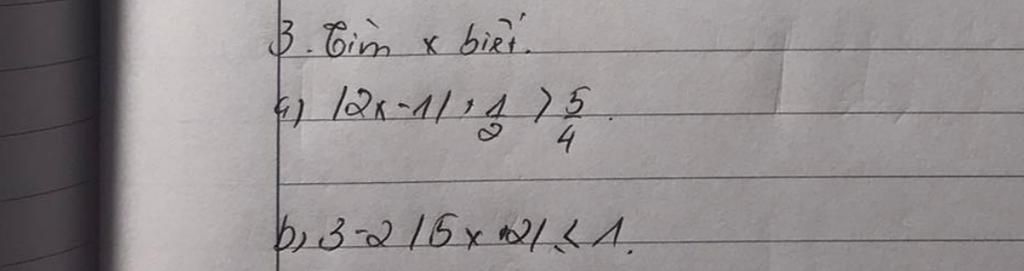 3. Tìm x biết.
a) |2x-1| + 1/2 > 5/4.
b, 3-2|5x+2| < 1.